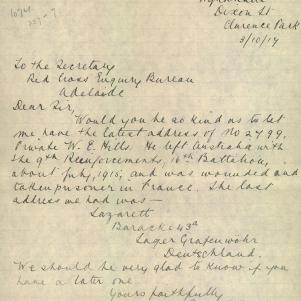 Dixon St
Clarence Park
3/10/17
To the Secretary
Red Cross Enquiry Bureau
Adelaide
Dear Sir,
Would you be so kind as to let
me have the latest address of No 2799.
Private W. E. Hills. He left Australia with
the 9th Reinforcements, 16th Battalion,
about July, 1915, and was wounded and
taken prisoner in France. The last
address we had was —
Lazarett
Baracke 43a
Lager Grafenwöhr
Deutschland.
We should be very glad to know if you
have a later one.
Yours faithfully